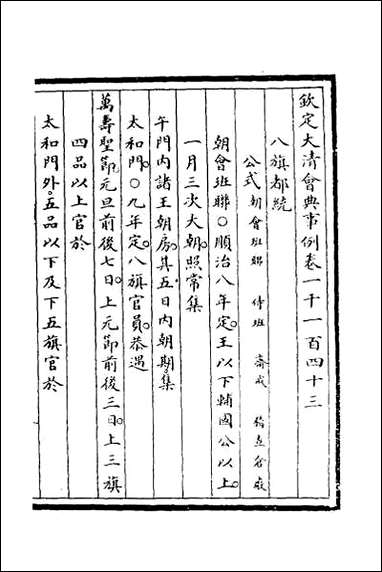 欽定大清會典事例卷一千一百四十三
八旗都統
公式 朝會班聯 侍班 齋戒 稽查倉庫
朝會班聯○順治八年定。王以下輔國公以上。
一月三次大朝。照常集
午門內諸王朝房。其五日內朝期。集
太和門。○九年定。八旗官員。恭遇
萬壽聖節。元旦前後七日。上元節前後三日。上三旗
四品以上官於
太和門外。五品以下及下五旗官於